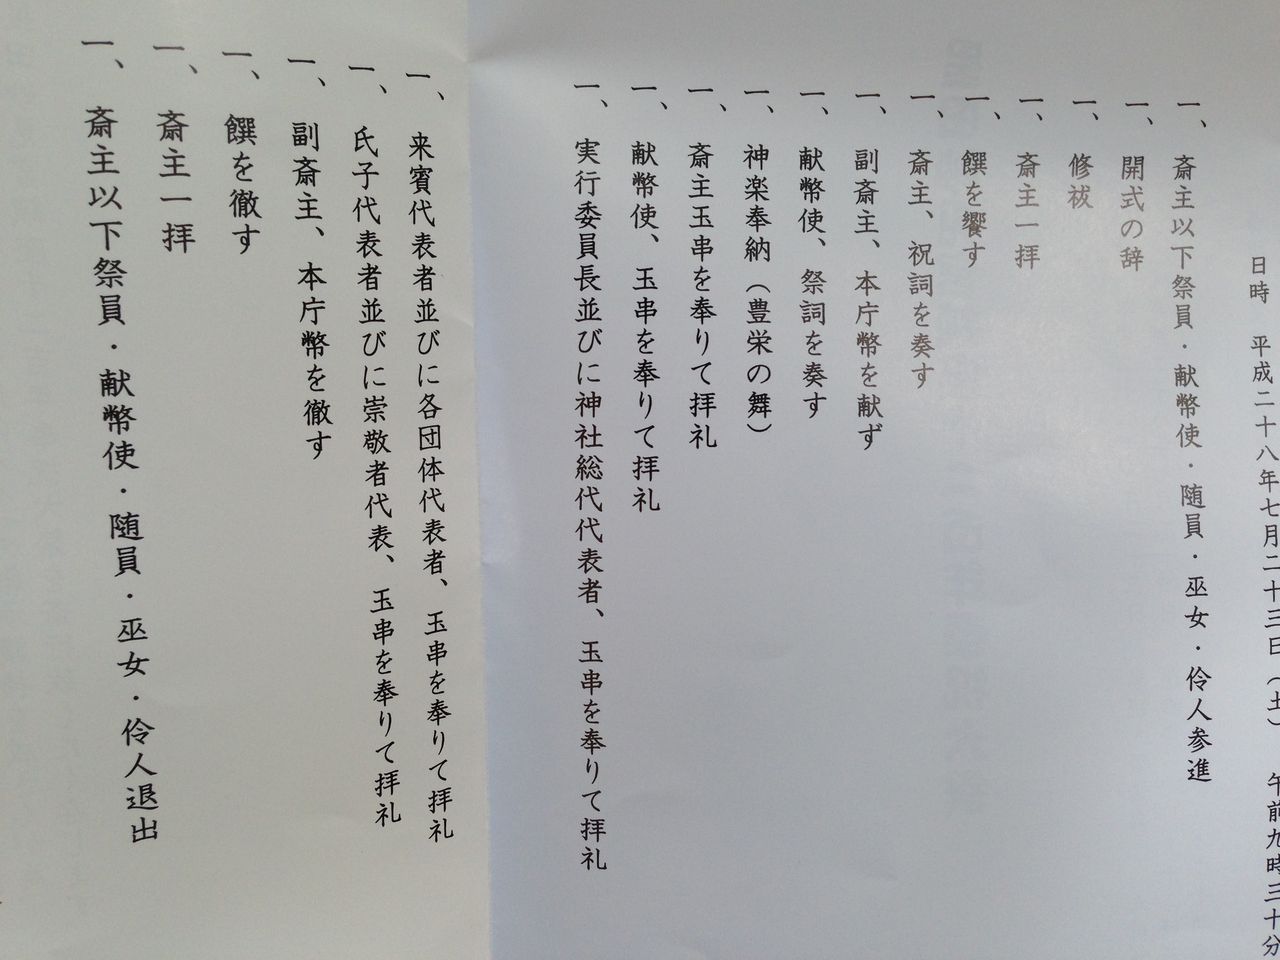 日時　平成二十八年七月二十三日（土）　午前九時三十分
一、斎主以下祭員・献幣使・随員・巫女・伶人参進
一、開式の辞
一、修祓
一、斎主一拝
一、饌を饗す
一、斎主、祝詞を奏す
一、副斎主、本庁幣を献ず
一、献幣使、祭詞を奏す
一、神楽奉納（豊栄の舞）
一、斎主玉串を奉りて拝礼
一、献幣使、玉串を奉りて拝礼
一、実行委員長並びに神社総代代表者、玉串を奉りて拝礼
一、来賓代表者並びに各団体代表者、玉串を奉りて拝礼
一、氏子代表者並びに崇敬者代表、玉串を奉りて拝礼
一、副斎主、本庁幣を徹す
一、饌を徹す
一、斎主一拝
一、斎主以下祭員・献幣使・随員・巫女・伶人退出